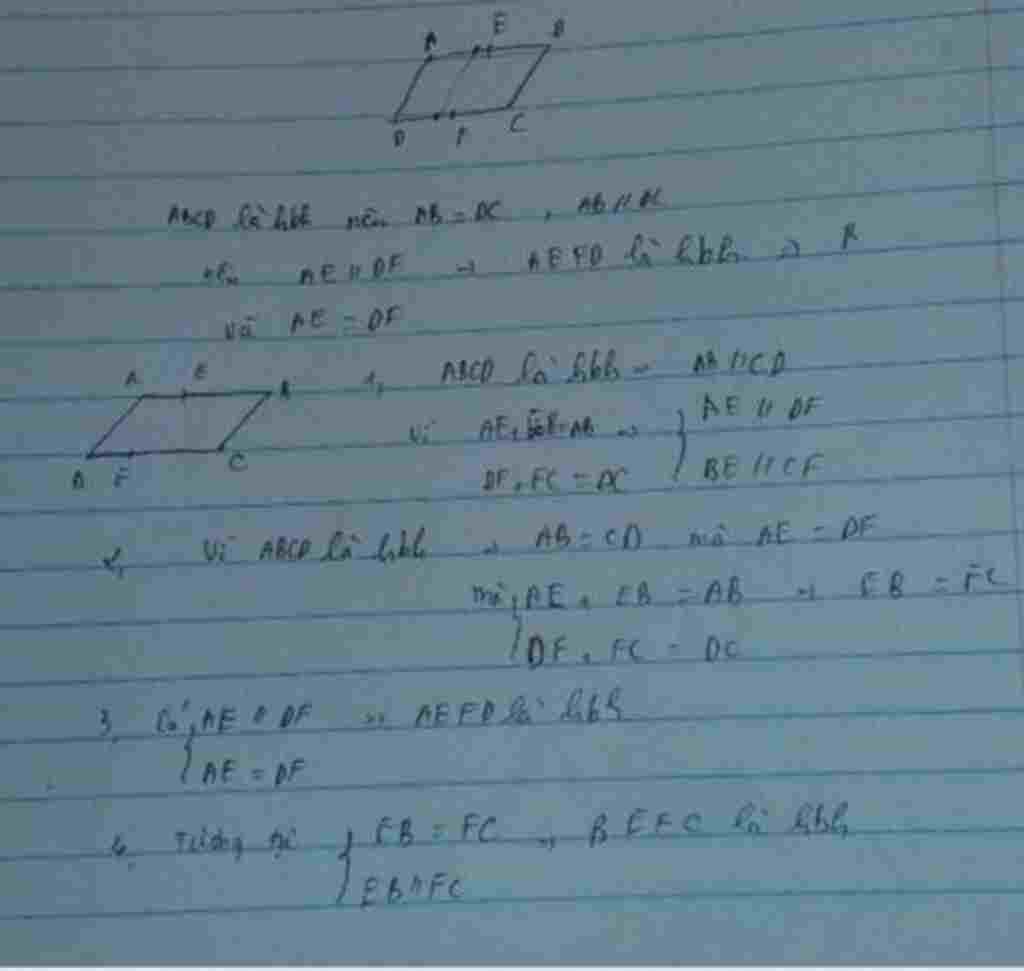 A E B
D F C
ABCD là hbh nên AB = DC , AB // DC
nên AE // DF → AEFD là hbh →
và AE = DF
A E B
D F C
1, ABCD là hbh → AB // CD
Vì AE + EB = AB → { AE // DF
DF + FC = DC BE // CF
2, Vì ABCD là hbh → AB = CD mà AE = DF
mà { AE + EB = AB → EB = FC
DF + FC = DC
3, Có { AE // DF → AEFD là hbh
AE = DF
4, Tương tự { EB = FC → BEFC là hbh
EB // FC